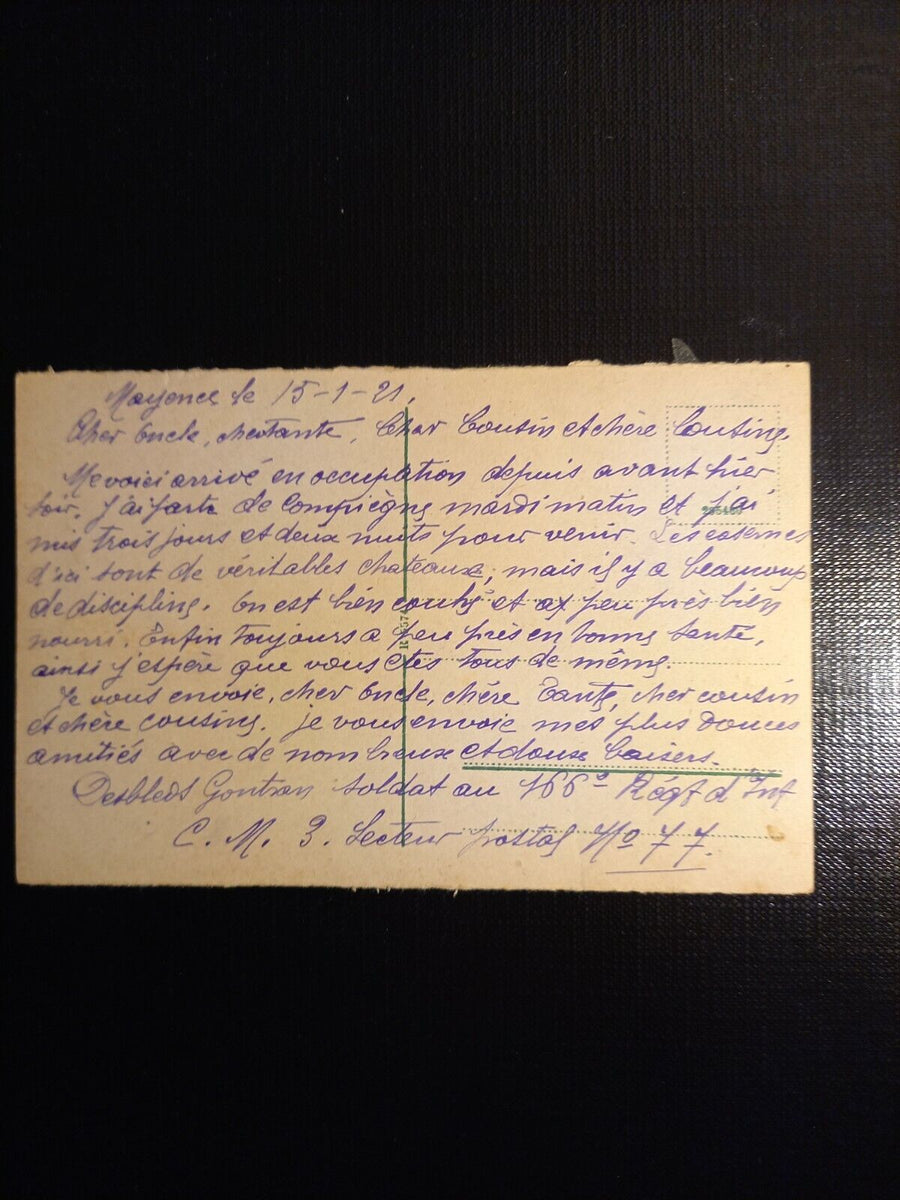 Mayence le 15-1-21,
Cher Oncle, chertante, Cher Cousin et chère Cousine.
Me voici arrivé en occupation depuis avant hier
soir. J'ai parte de Compiègne mardi matin et j'ai
mis trois jours et deux nuits pour venir. Les casernes
d'ici sont de véritables chateaux, mais il y a beaucoup
de discipline. On est bien couché et a peu près bien
nourri. Enfin toujours a peu près en bonne santé,
ainsi j'espère que vous etes tous de même.
Je vous envoie, cher Oncle, chère Tante, cher cousin
et chère cousine. je vous envoie mes plus douces
amitiés avec de nombreux et doux baisers.
Desbleds Gontran soldat au 166e Régt d'Inf
C. M. 3. Secteur postal No 77.